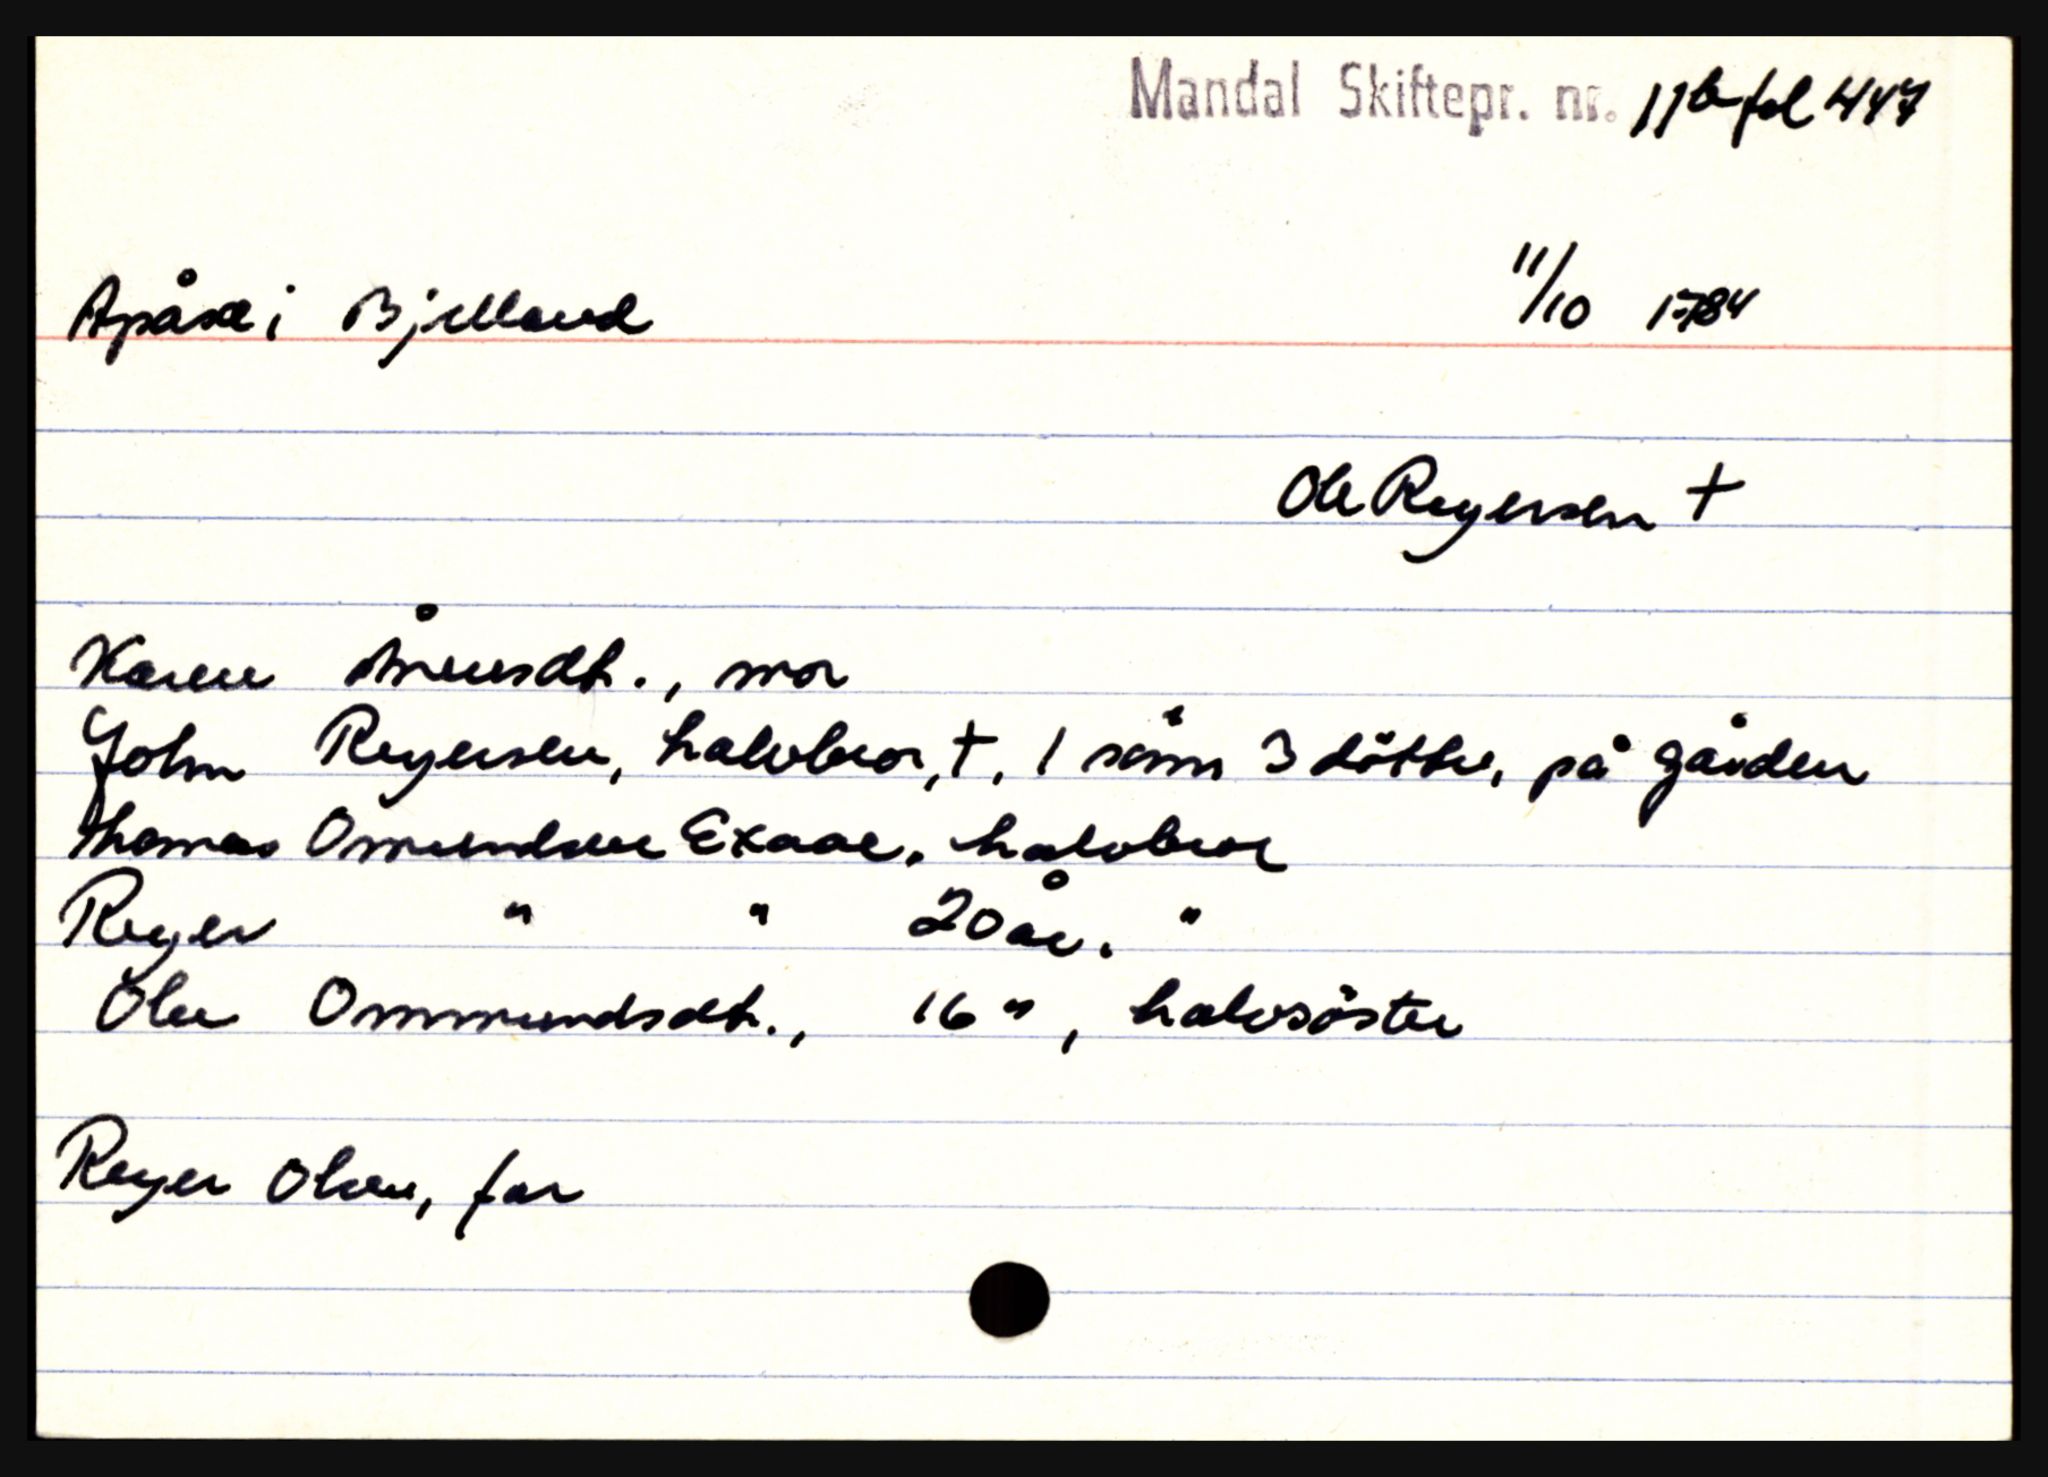 Mandal Skiftepr. nr. 11b fol 447
Apåsæ i Bjelland 11/10 1784
Ole Reyersen †
Karen Ånensdt., mor
John Reyersen, halvbror, †, 1 sönn 3 döttre, på gården
Thomas Omundsen Exaae, halvbror
Reyer " " 20 år. "
Olen Ommundsdt., 16 ", halvsöster
Reyer Olsen, far